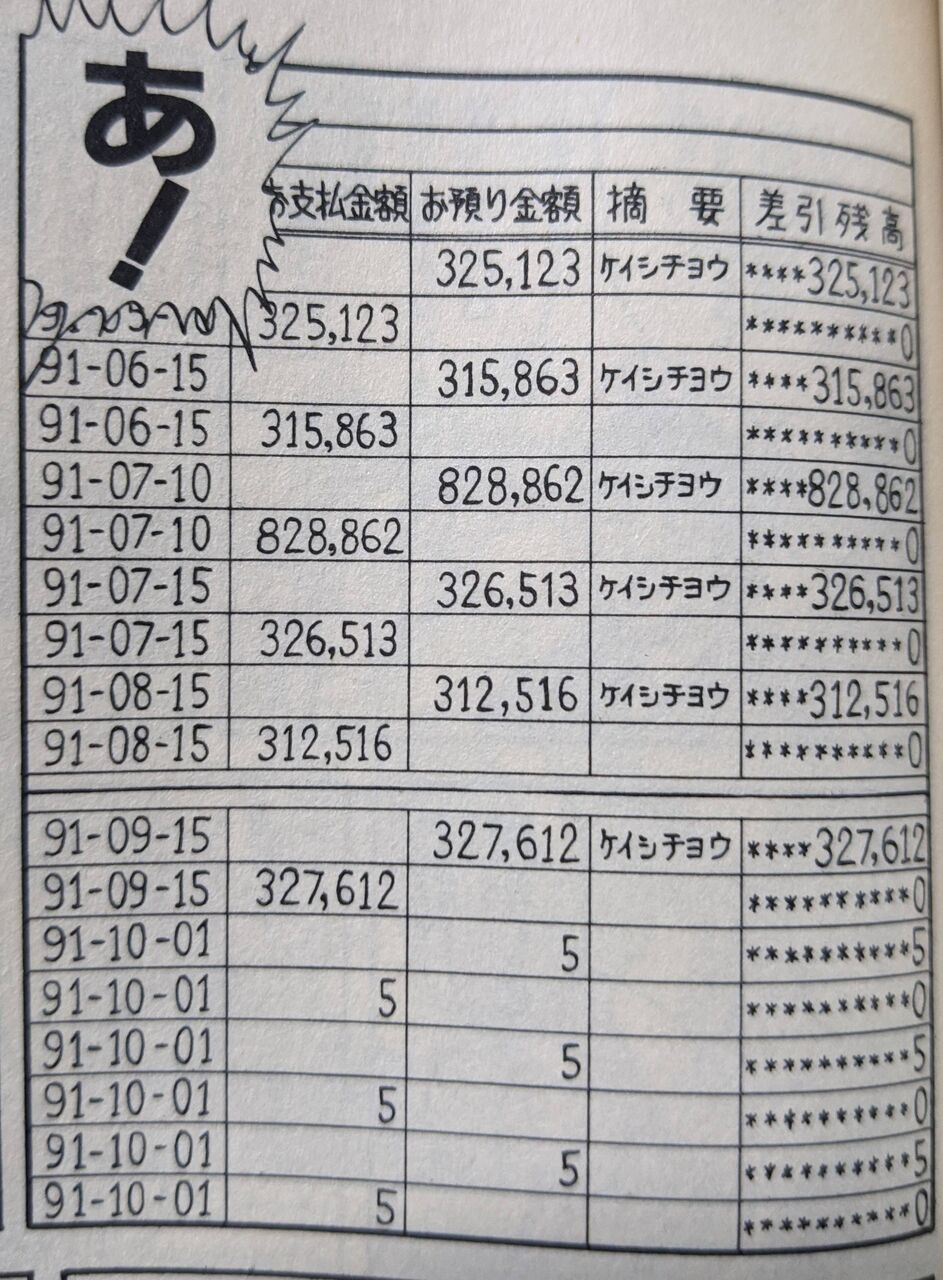 あ！
お支払金額 お預り金額 摘要 差引残高
325,123 ケイシチヨウ ****325,123
325,123 **********0
91-06-15 315,863 ケイシチヨウ ****315,863
91-06-15 315,863 **********0
91-07-10 828,862 ケイシチヨウ ****828,862
91-07-10 828,862 **********0
91-07-15 326,513 ケイシチヨウ ****326,513
91-07-15 326,513 **********0
91-08-15 312,516 ケイシチヨウ ****312,516
91-08-15 312,516 **********0
91-09-15 327,612 ケイシチヨウ ****327,612
91-09-15 327,612 **********0
91-10-01 5 **********5
91-10-01 5 **********0
91-10-01 5 **********5
91-10-01 5 **********0
91-10-01 5 **********5
91-10-01 5 **********0